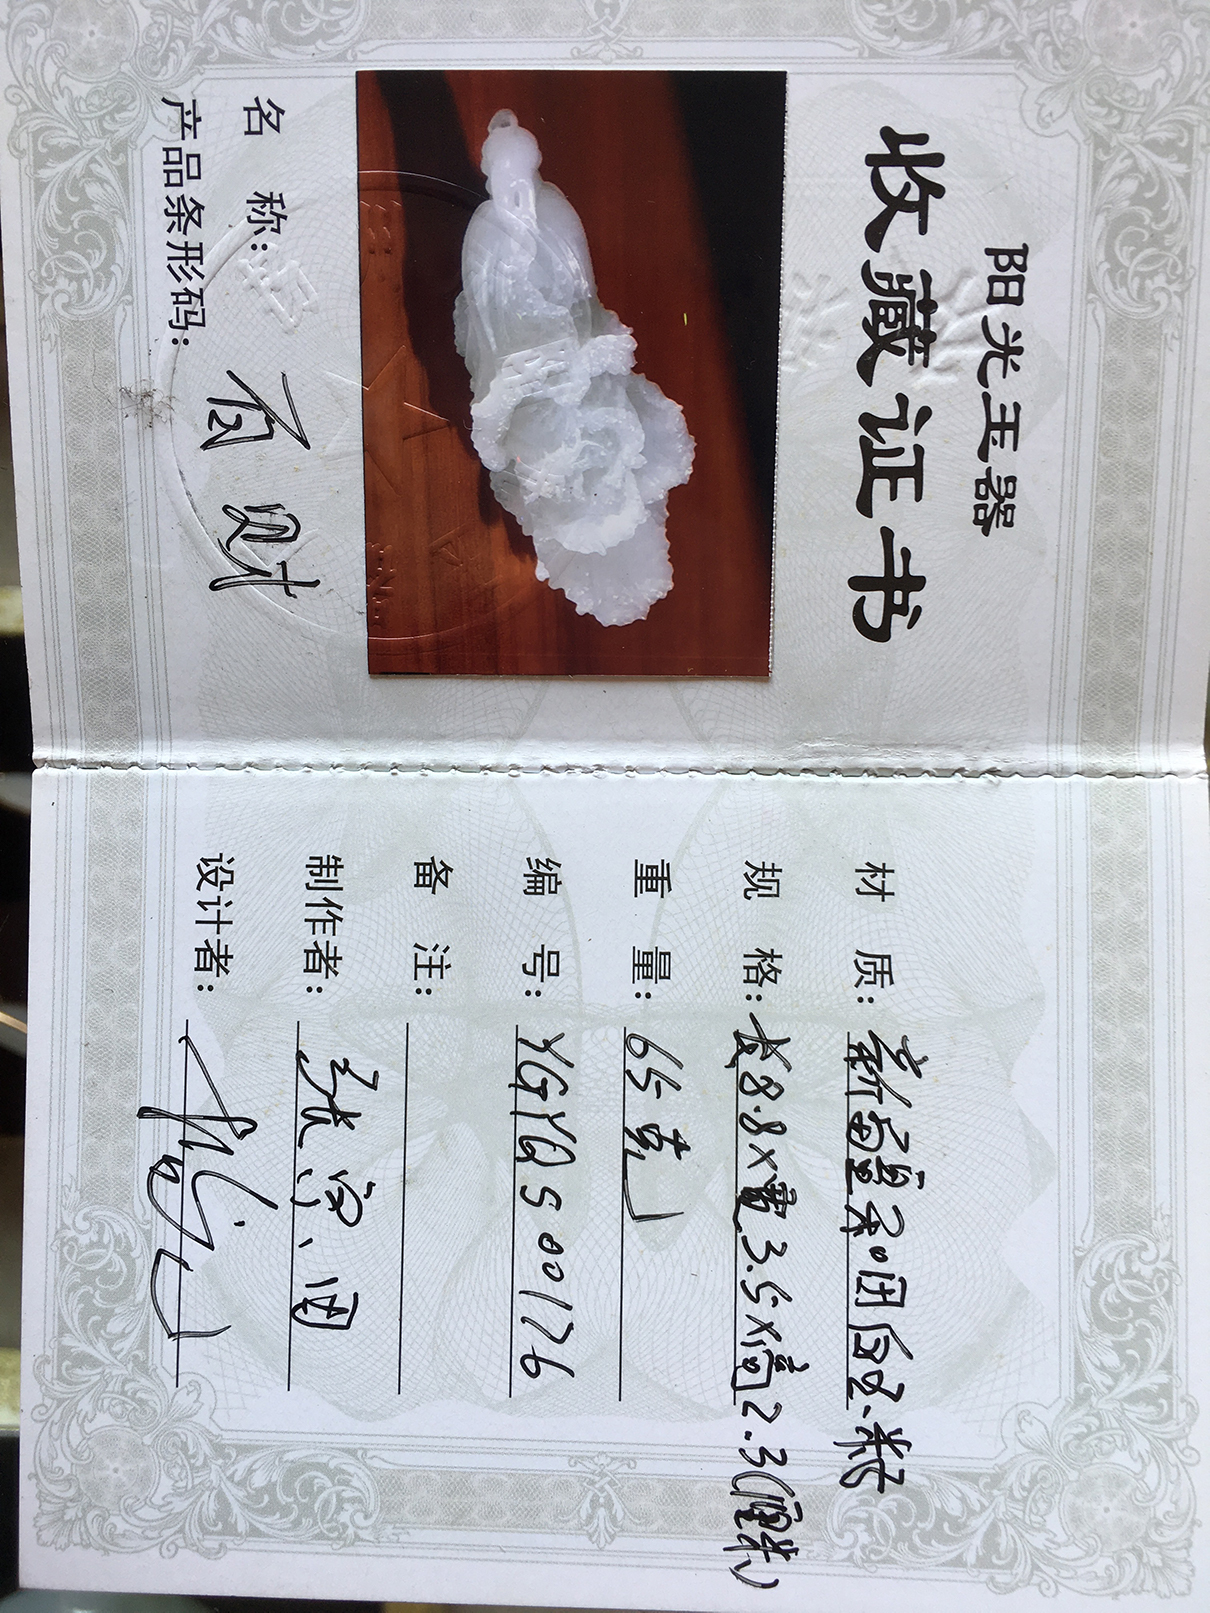 阳光玉器
收藏证书
名 称: 百财
产品条形码:
材 质: 新疆和田白玉籽
规 格: 长8.8×宽3.5×高2.3(厘米)
重 量: 65克
编 号: YGYQS00176
备 注:
制作者:
设计者: